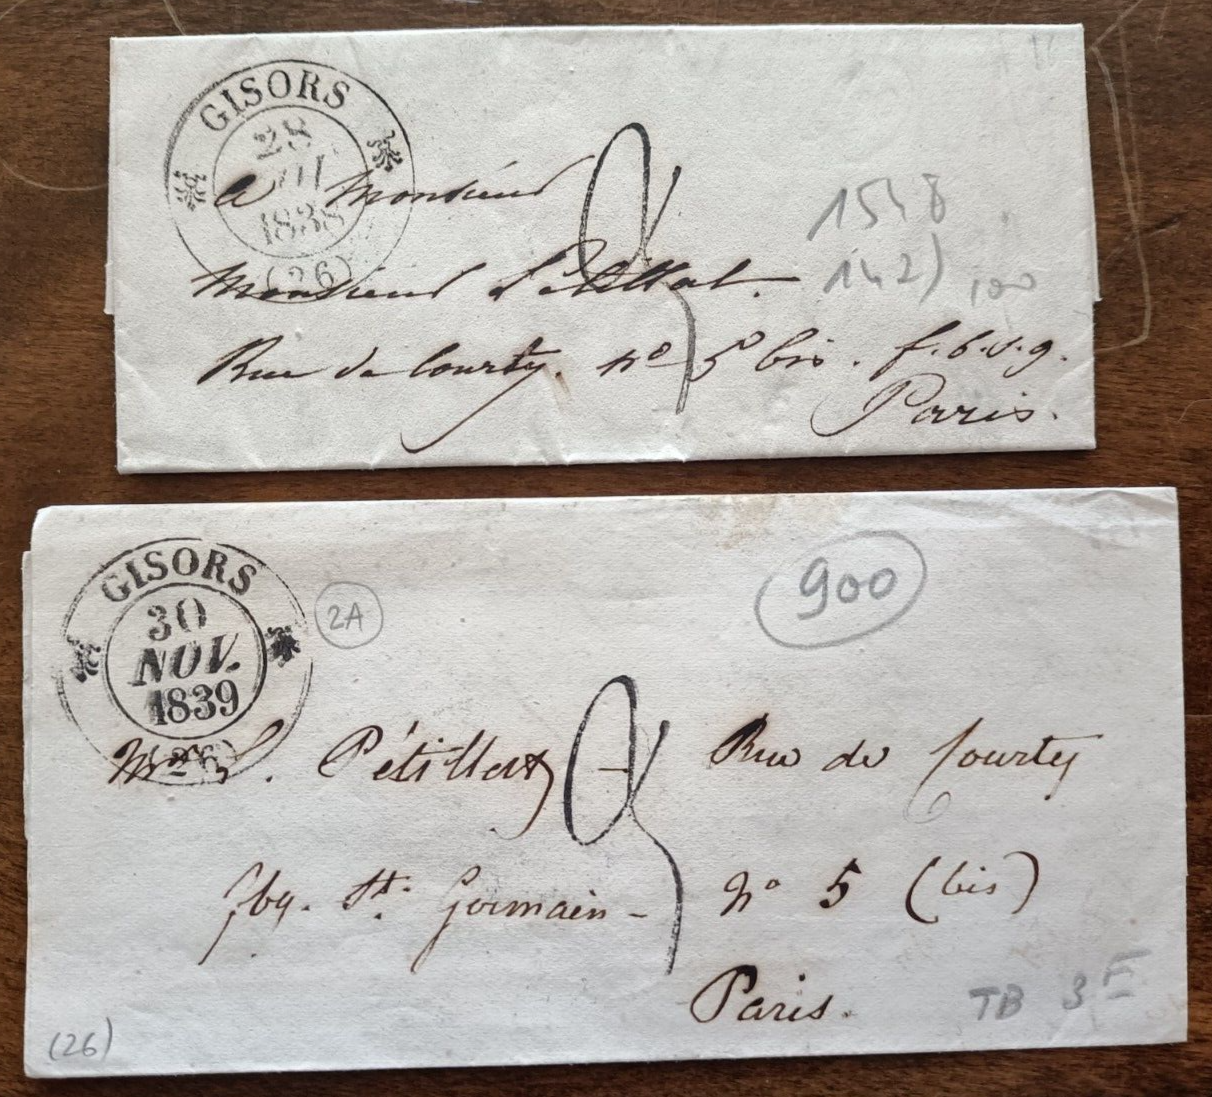 GISORS
28
JUI
1838
(26)
a Monsieur
Monsieur Petillat.
Rue de Courty. n° 5 bis. f.b.s.g.
Paris.
1548
142)
100
GISORS
30
NOV.
1839
(26)
2A
900
Pétillat Rue de Courty
fbg. St. Germain - N° 5 (bis)
Paris.
TB 3F
(26)